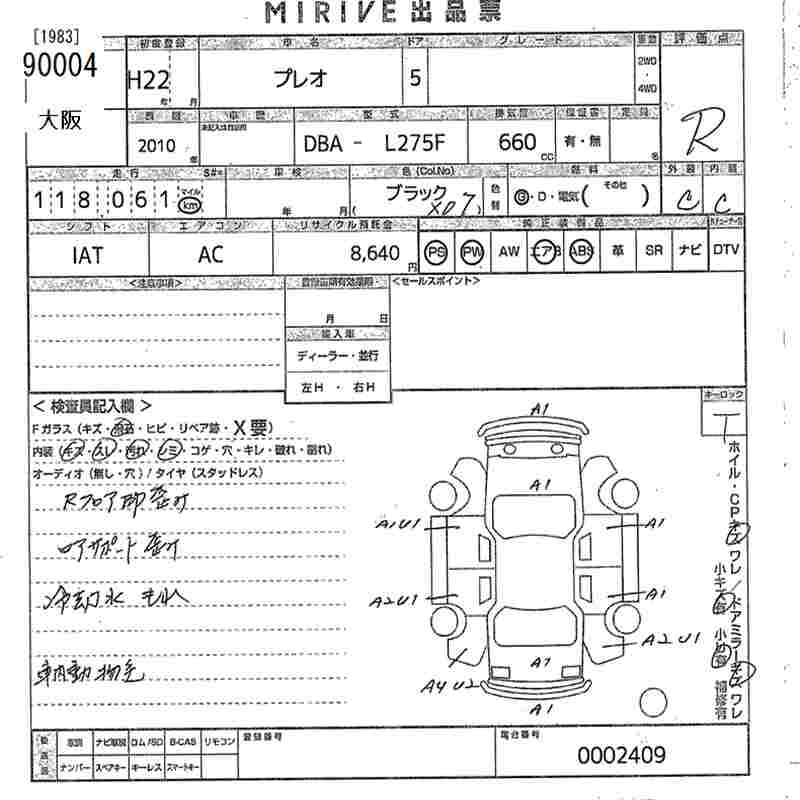 MIRIVE出品票
[1983]
90004
大阪
初度登録 車名 ドア グレード 駆動 評価点
H22 年 月 プレオ 5 2WD・4WD R
車歴 型式 排気量 保証書 定員
2010 年 DBA - L275F 660 cc 有・無 名
走行 S#= 車検 色(Col.No) 燃料 外装 内装
118061 マイル km 年 月 ブラック (X07) 色替 G・D・電気( その他 ) C C
シフト エアコン リサイクル預託金 純正装備品
IAT AC 8,640 円 PS PW AW エアB ABS 革 SR ナビ DTV
<注意事項> 登録書類有効期限 <セールスポイント>
月 日
輸入車
ディーラー・並行
左H ・ 右H
キーロック
T
< 検査員記入欄 >
Fガラス(キズ・ ・ヒビ・リペア跡・X要)
内装(キズ・スレ・汚れ・シミ・コゲ・穴・キレ・破れ・割れ)
オーディオ(無し・穴)/タイヤ(スタッドレス)
Rフロア部歪み
コアサポート歪み
冷却水 もれ
車内動物毛
A1
A1
A1U1 A1
A2U1 A1
A2U1
A4U2 A1
A1
ホイル・CPキズ ワレ/ドアミラーキズ ワレ
小キズ 小凹 補修有
取説 ナビ取説 ロム/SD B-CAS リモコン 登録番号 車台番号
ナンバー スペアキー キーレス スマートキー 0002409